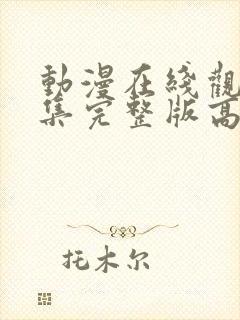 動漫在线觀
集完整版高
托木尔